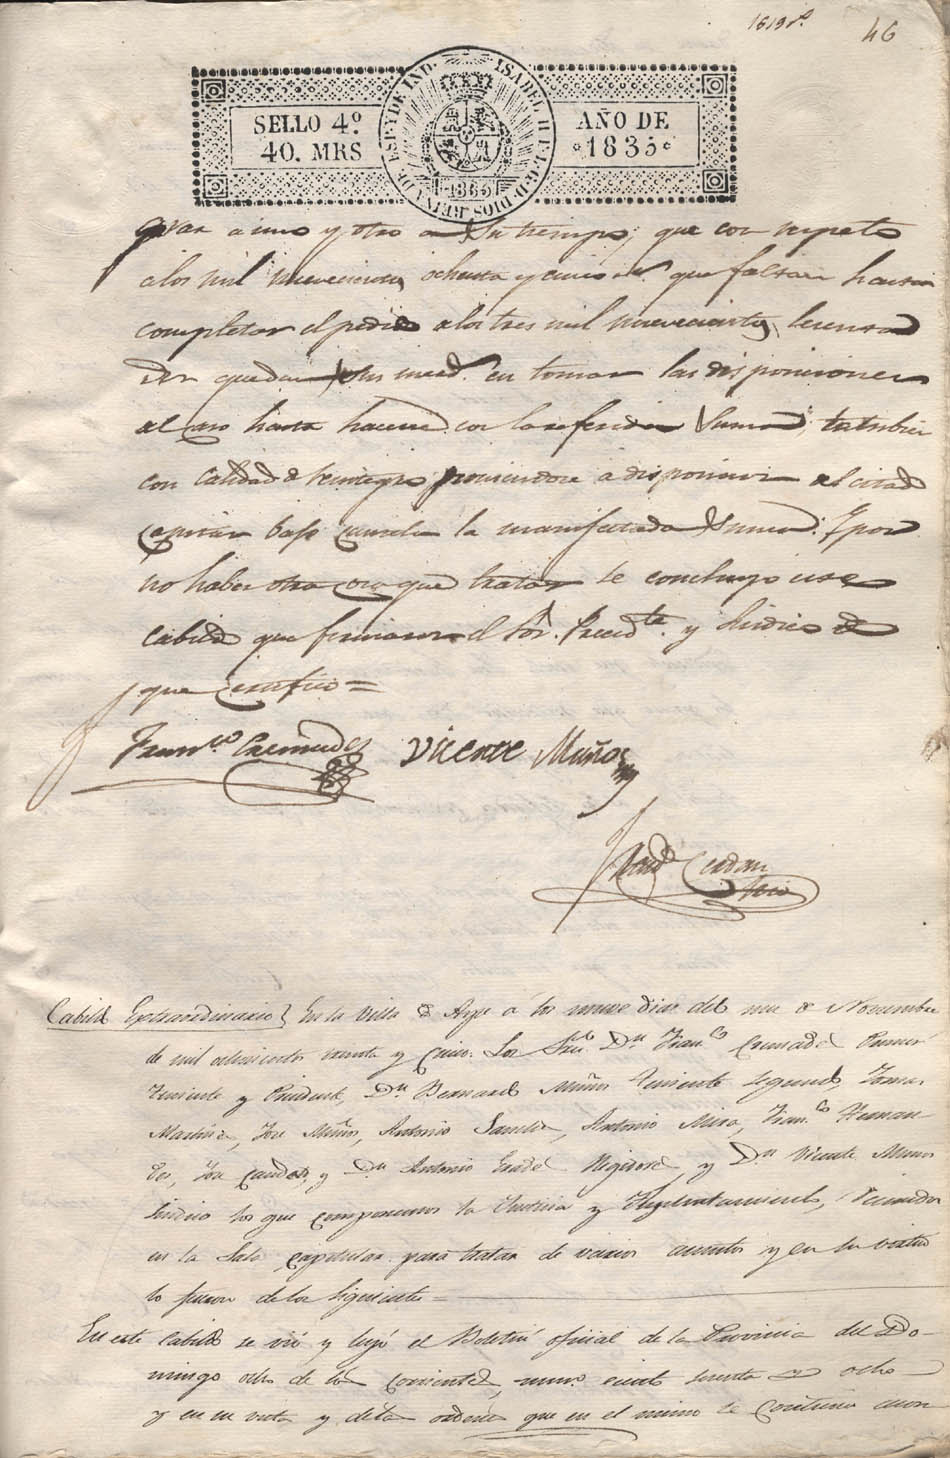 1619 r.
46
SELLO 4º
40. MRS
ISABEL II P. L. G. D. DIOS REINA DE ESP. Y DE IND.
1835
AÑO DE
1835
a uno y otro a su tiempo; que con respeto
a los mil nuevecientos ochenta y cinco que faltan hasta
completar el pedido a los tres mil nuevecientos
quedan sus mrd. en tomar las disposiciones
al caso hasta hacerse con la referida suma, tambien
con calidad de reintegro poniendose a disposicion del citado
la manifestada suma. Y por
no haber otra cosa que tratar se concluyo este
cabildo que firmaron el Sor. Presidte. y Sindico de
que certifico =
Franco. Cremades Vicente Muños
Cerdan
Srio
Cabildo Extraordinario} En la villa de Aspe a los nueve dias del mes de Noviembre
de mil ochocientos treinta y cinco. Los Sres. Dn. Franco. Cremades Primer
Teniente y Presidente, Dn. Bernardo Muños Teniente segundo, Tomas
Martines, Jose Muños, Antonio Sanches, Antonio Mira, Franco. Hernan-
des, Jose y Dn. Antonio Regidores, y Dn. Vicente Munos
Sindico los que componemos la Justicia y Ayuntamiento, reunidos
en la Sala capitular para tratar de varios asuntos y en su virtud
lo fueron de los siguientes =
En este Cabildo se vió y leyó el Boletin oficial de la Provincia del Do-
mingo ocho de los corrientes, numo. ciento y ocho
y en su vista y de las ordenes que en el mismo se